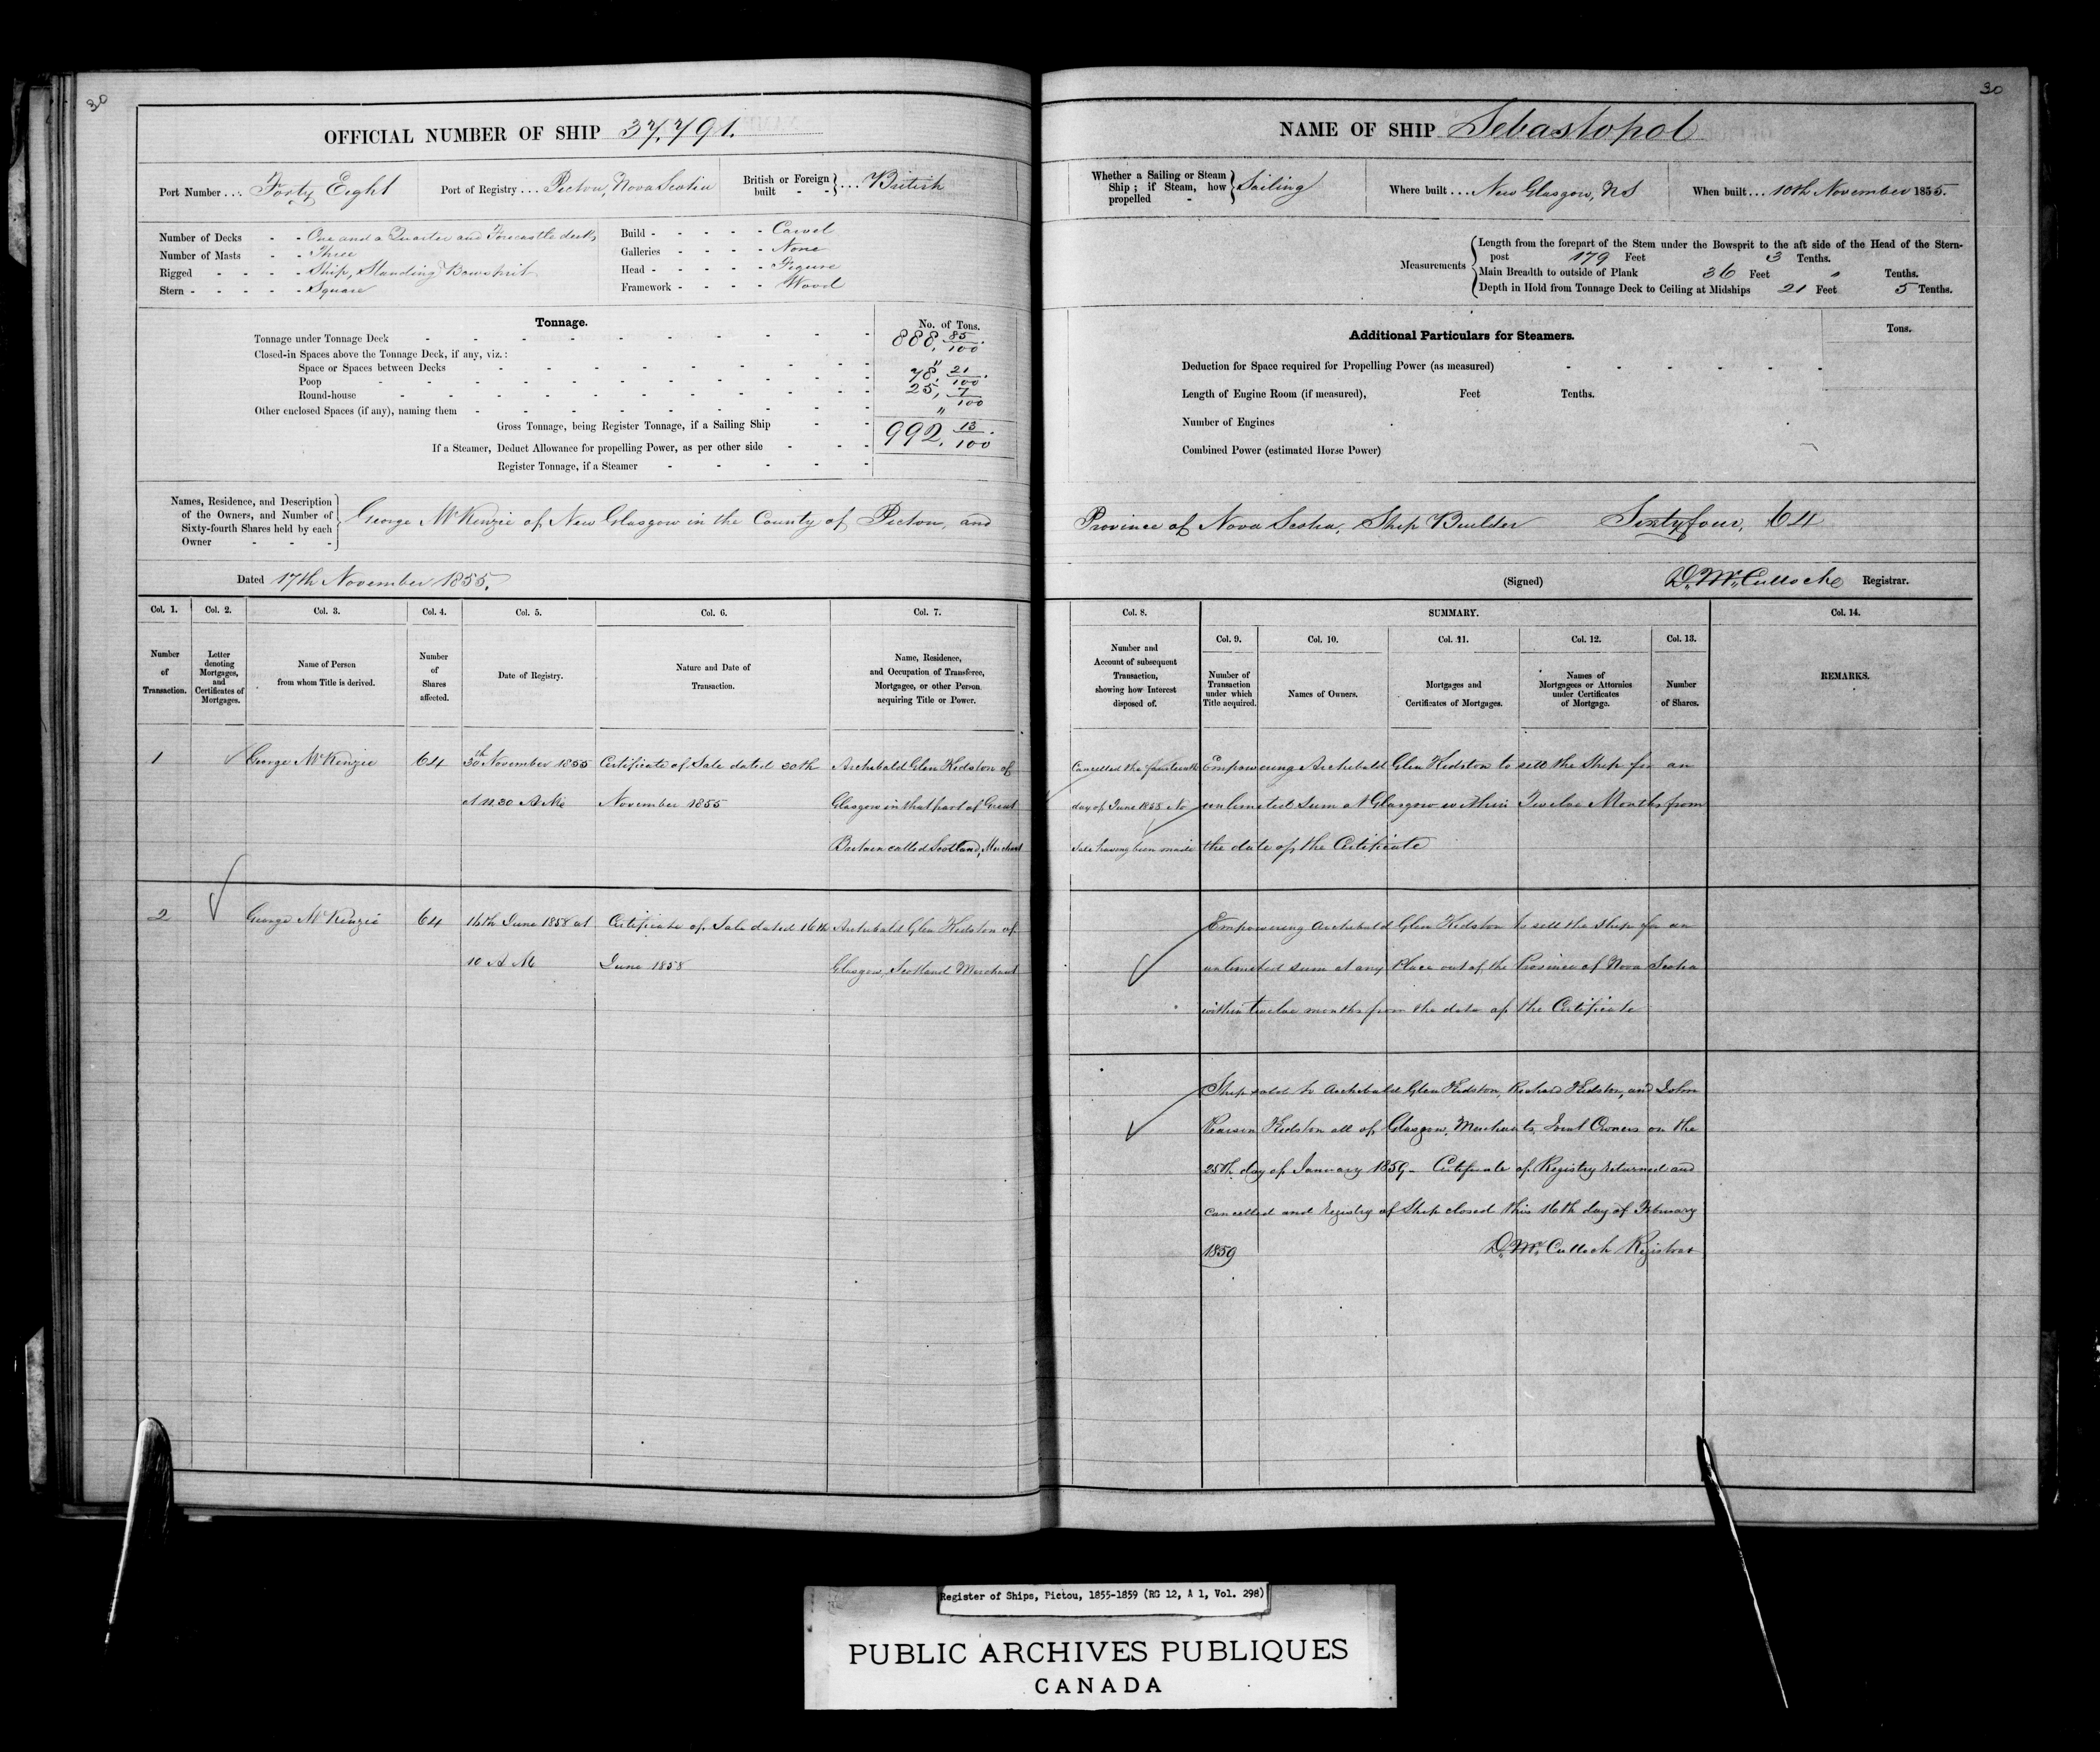 30
OFFICIAL NUMBER OF SHIP 37,791.
Port Number... Forty Eight
Port of Registry... Pictou, Nova Scotia
British or Foreign built - - } ... British
Number of Decks - - One and a Quarter and Forecastle decks
Number of Masts - - Three
Rigged - - - - - Ship, Standing Bowsprit
Stern - - - - - Square
Build - - - - - Carvel
Galleries - - - - None
Head - - - - - Figure
Framework - - - - Wood
Tonnage.
No. of Tons.
Tonnage under Tonnage Deck 888, 85/100.
Closed-in Spaces above the Tonnage Deck, if any, viz.:
Space or Spaces between Decks "
Poop 78, 21/100.
Round-house 25, 7/100
Other enclosed Spaces (if any), naming them "
Gross Tonnage, being Register Tonnage, if a Sailing Ship 992, 13/100.
If a Steamer, Deduct Allowance for propelling Power, as per other side
Register Tonnage, if a Steamer
Names, Residence, and Description
of the Owners, and Number of
Sixty-fourth Shares held by each
Owner - - -
George McKenzie of New Glasgow in the County of Pictou, and
Dated 17th November 1855.
Col. 1.
Number
of
Transaction.
Col. 2.
Letter
denoting
Mortgages,
and
Certificates of
Mortgages.
Col. 3.
Name of Person
from whom Title is derived.
Col. 4.
Number
of
Shares
affected.
Col. 5.
Date of Registry.
Col. 6.
Nature and Date of
Transaction.
Col. 7.
Name, Residence,
and Occupation of Transferee,
Mortgagee, or other Person
acquiring Title or Power.
1
George McKenzie
64
30th November 1855
at 11.30 A.M.
Certificate of Sale dated 30th
November 1855
Archibald Glen Kidston of
Glasgow in that part of Great
Britain called Scotland, Merchant
2
George McKenzie
64
16th June 1858 at
10 A M
Certificate of Sale dated 16th
June 1858
Archibald Glen Kidston of
Glasgow, Scotland Merchant
30
NAME OF SHIP Sebastopol
Whether a Sailing or Steam
Ship; if Steam, how
propelled - } Sailing
Where built... New Glasgow, NS
When built... 10th November 1855.
Measurements
Length from the forepart of the Stem under the Bowsprit to the aft side of the Head of the Stern-
post 179 Feet 3 Tenths.
Main Breadth to outside of Plank 36 Feet " Tenths.
Depth in Hold from Tonnage Deck to Ceiling at Midships 21 Feet 5 Tenths.
Additional Particulars for Steamers.
Tons.
Deduction for Space required for Propelling Power (as measured)
Length of Engine Room (if measured), Feet Tenths.
Number of Engines
Combined Power (estimated Horse Power)
Province of Nova Scotia, Ship Builder Sixtyfour, 64
(Signed) D. McCulloch Registrar.
Col. 8.
Number and
Account of subsequent
Transaction,
showing how Interest
disposed of.
SUMMARY.
Col. 9.
Number of
Transaction
under which
Title acquired.
Col. 10.
Names of Owners.
Col. 11.
Mortgages and
Certificates of Mortgages.
Col. 12.
Names of
Mortgagees or Attornies
under Certificates
of Mortgage.
Col. 13.
Number
of Shares.
Col. 14.
REMARKS.
Cancelled the fourteenth
day of June 1858 No
Sale having been made
Empowering Archibald Glen Kidston to sell the Ship for an
unlimited sum at Glasgow within Twelve Months from
the date of the Certificate
Empowering Archibald Glen Kidston to sell the Ship for an
unlimited sum at any Place out of the Province of Nova Scotia
within twelve months from the date of the Certificate
Ship sold to Archibald Glen Kidston, Richard Kidston, and John
Pearson Kidston all of Glasgow, Merchants, Joint Owners on the
25th day of January 1859 - Certificate of Registry returned and
cancelled and Registry of Ship closed this 16th day of February
1859 D. McCulloch Registrar
Register of Ships, Pictou, 1855-1859 (RG 12, A 1, Vol. 298)
PUBLIC ARCHIVES PUBLIQUES
CANADA